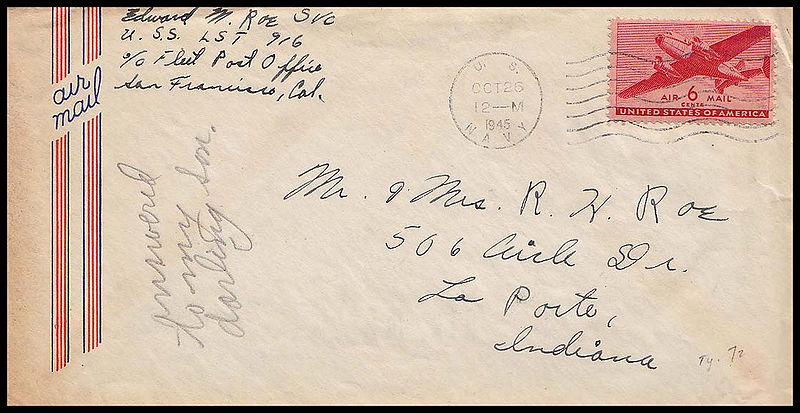 Edward M. Roe SV6
U.S.S. LST 916
c/o Fleet Post Office
San Francisco, Cal.
air
mail
U. S.
OCT 26
12--M
1945
NAVY
AIR 6 MAIL
CENTS
UNITED STATES OF AMERICA
answered
to my
darling son.
Mr. & Mrs. R. H. Roe
506 Circle Dr.
La Porte,
Indiana